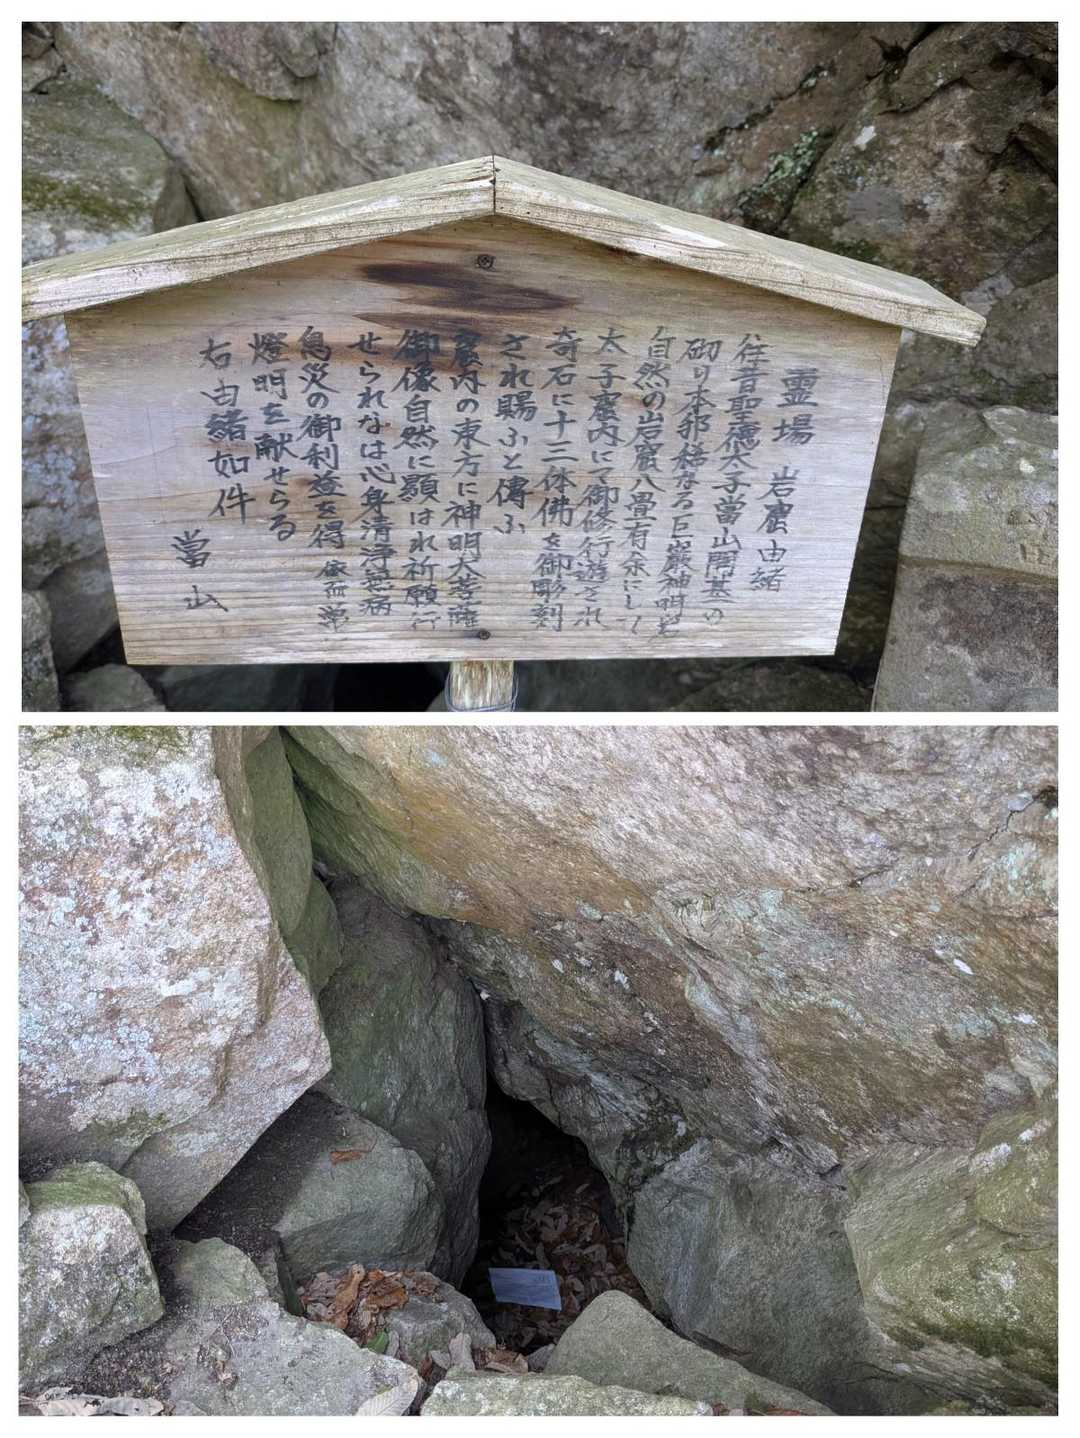 霊場 岩窟由緒
往昔聖德太子當山開基の
砌り本邦稀なる巨巌神明岩
自然の岩窟八畳有余にして
太子窟内にて御修行遊され
奇石に十三体佛を御彫刻
され賜ふと傳ふ
窟内の東方に神明大菩薩
御像自然に顕はれ祈願行
せられなは心身清浄無病
息災の御利益を得 依而常
燈明を献せらる
右由緒如件
當山